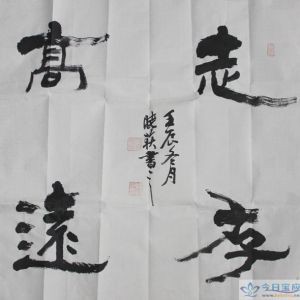 志存
高遠
壬辰冬月
晓書之
今日宝应